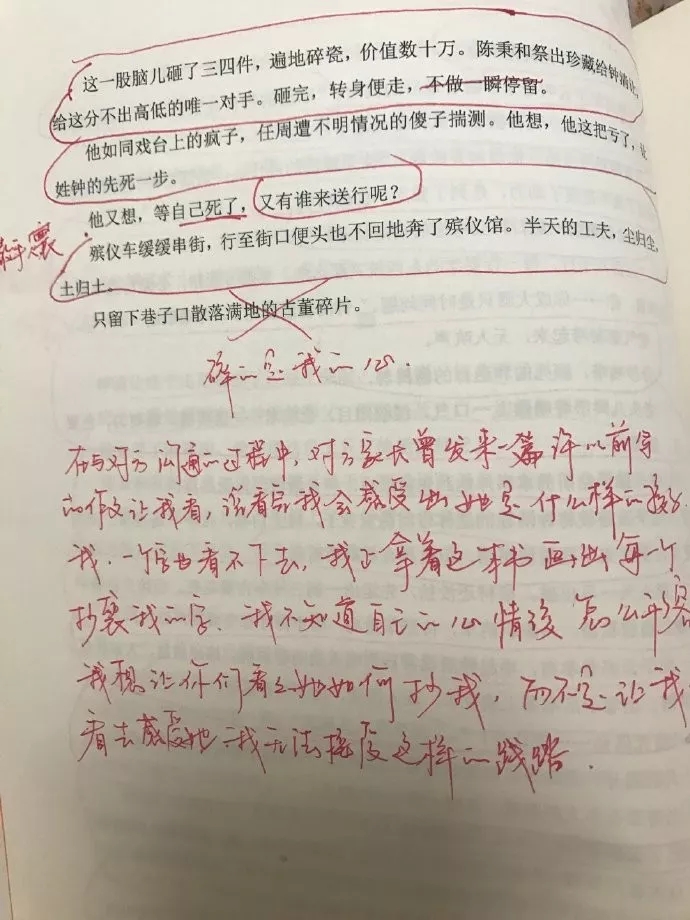 这一股脑儿砸了三四件，遍地碎瓷，价值数十万。陈秉和祭出珍藏给钟满
给这分不出高低的唯一对手。砸完，转身便走，不做一瞬停留。
他如同戏台上的疯子，任周遭不明情况的傻子揣测。他想，他这把亏了，让
姓钟的先死一步。
他又想，等自己死了，又有谁来送行呢？
殡仪车缓缓串街，行至街口便头也不回地奔了殡仪馆。半天的工夫，尘归尘，
土归土。
只留下巷子口散落满地的古董碎片。
碎的是我的心.
在与对方沟通的过程中，对方家长曾发来一篇许以前写
的作文让我看，说看完我会感受出她是什么样的孩子
我.一个字也看不下去，我正拿着这本书画出每一个
抄袭我的字.我不知道自己的心情该怎么平缓
我想让你们看看她如何抄我，而不是让我
看去感受她.我无法接受这样的践踏.